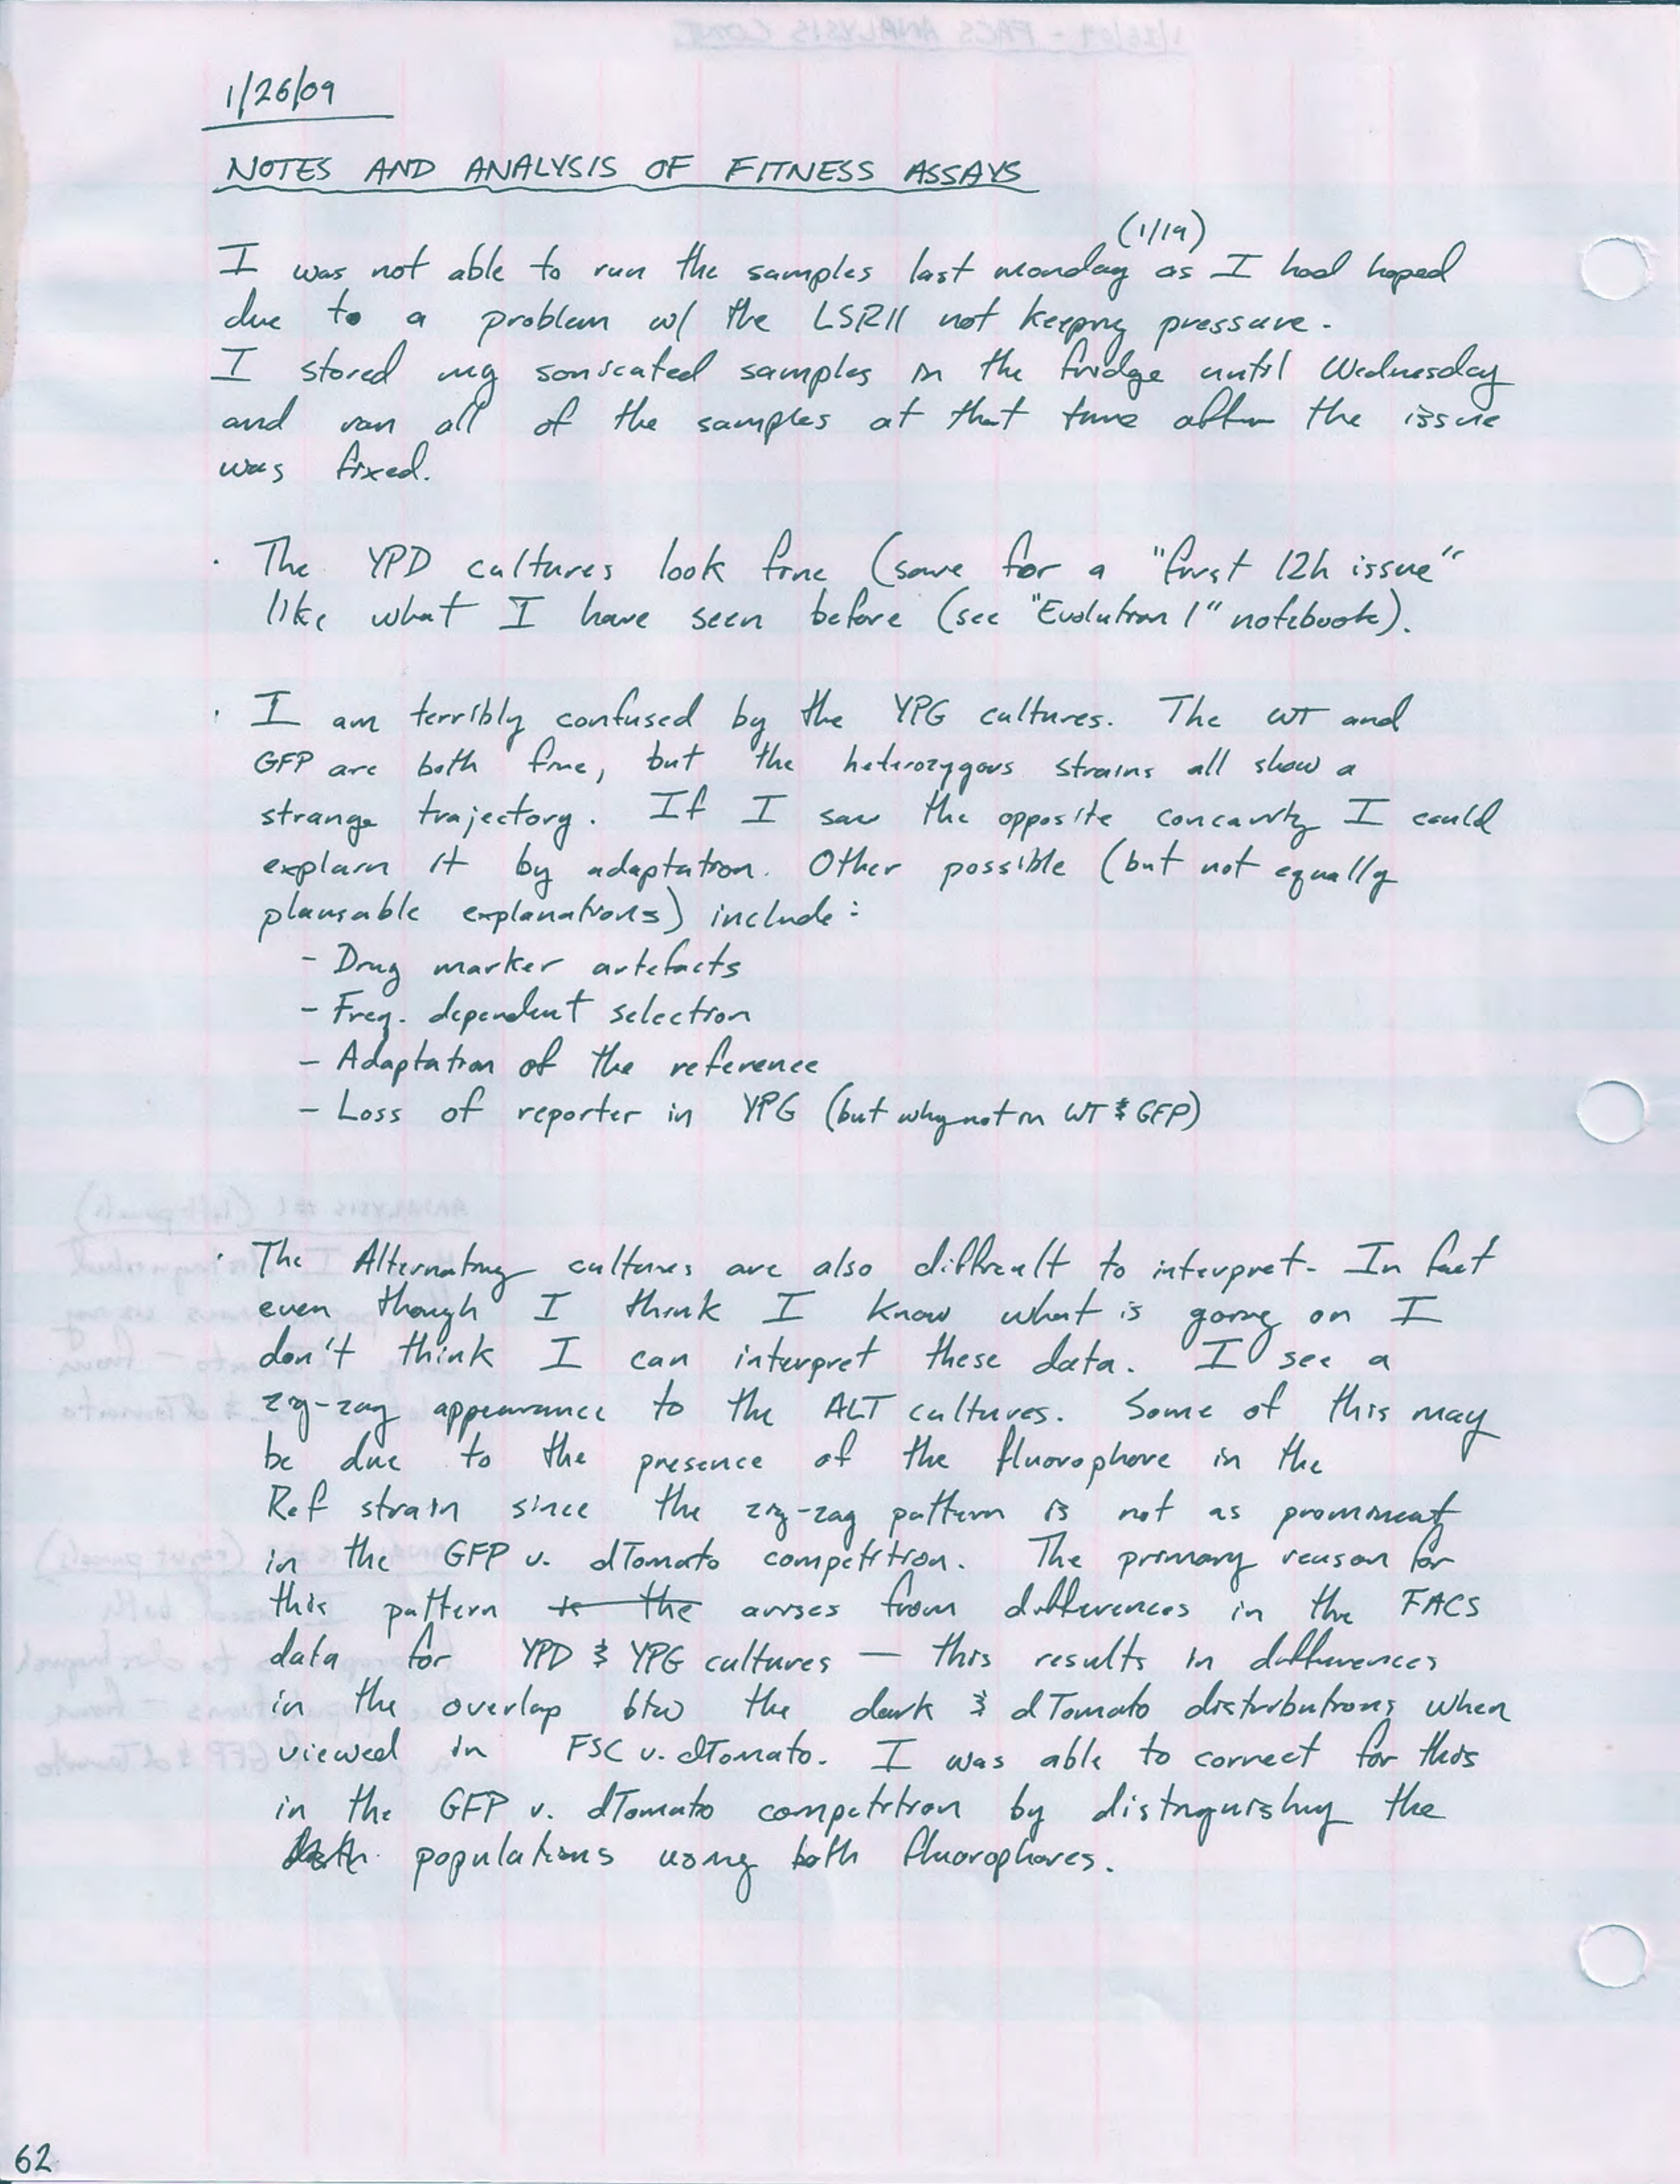 1/26/09
NOTES AND ANALYSIS OF FITNESS ASSAYS
(1/19)
I was not able to run the samples last monday as I had hoped
due to a problem w/ the LSRII not keeping pressure.
I stored my sonicated samples in the fridge until Wednesday
and ran all of the samples at that time after the issue
was fixed.
· The YPD cultures look fine (save for a "first 12h issue"
like what I have seen before (see "Evolution 1" notebook).
· I am terribly confused by the YPG cultures. The WT and
GFP are both fine, but the heterozygous strains all show a
strange trajectory. If I saw the opposite concavity I could
explain it by adaptation. Other possible (but not equally
plausable explanations) include:
- Drug marker artefacts
- Freq. dependent selection
- Adaptation of the reference
- Loss of reporter in YPG (but why not in WT & GFP)
· The Alternating cultures are also difficult to interpret. In fact
even though I think I know what is going on I
don't think I can interpret these data. I see a
zig-zag appearance to the ALT cultures. Some of this may
be due to the presence of the fluorophore in the
Ref strain since the zig-zag pattern is not as prominent
in the GFP v. dTomato competition. The primary reason for
this pattern is the arises from differences in the FACS
data for YPD & YPG cultures — this results in differences
in the overlap btw the dark & dTomato distributions when
viewed in FSC v. dTomato. I was able to correct for this
in the GFP v. dTomato competition by distinguishing the
populations using both fluorophores.
62